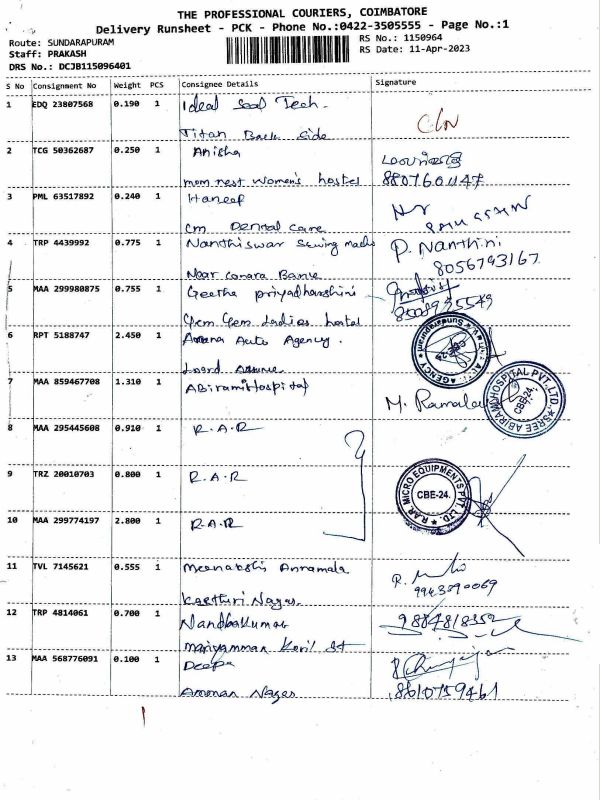 THE PROFESSIONAL COURIERS, COIMBATORE
Delivery Runsheet - PCK - Phone No.:0422-3505555 - Page No.:1
Route: SUNDARAPURAM
Staff: PRAKASH
DRS No.: DCJB115096401
RS No.: 1150964
RS Date: 11-Apr-2023
S No Consignment No Weight PCS Consignee Details Signature
1 EDQ 23807568 0.190 1 Ideal Seal Tech.
Titan Back Side
2 TCG 50362687 0.250 1 Anisha
mom nest women's hostel 8807601147
3 PML 63517892 0.240 1 Haneef
cm Dental care
4 TRP 4439992 0.775 1 Nanthiswar Sewing P. Nanthini
Near canara Bank 8056793167
5 MAA 299980875 0.755 1 Geetha priyadharshini
Gem Gem Ladies hostel
6 RPT 5188747 2.450 1 Amma Auto Agency.
7 MAA 859467708 1.310 1 ABirami Hospital
SREE ABIRAMI HOSPITAL PVT. LTD. CBE-24.
8 MAA 295445608 0.910 1 R.A.R
9 TRZ 20010703 0.800 1 R.A.R
R.A.R MICRO EQUIPMENTS PVT. LTD. CBE-24.
10 MAA 299774197 2.800 1 R.A.R
11 TVL 7145621 0.555 1 Meenakshi
Nagar 9943890069
12 TRP 4814061 0.700 1 Nandhakumar 9884818352
mariyamman Kovil St
13 MAA 568776091 0.100 1 Deepa
Amman Nagar 8610759461